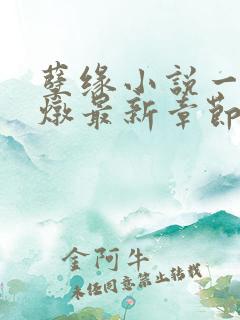 孽缘小说一
燉最新章節
金阿牛
未经同意禁止转载